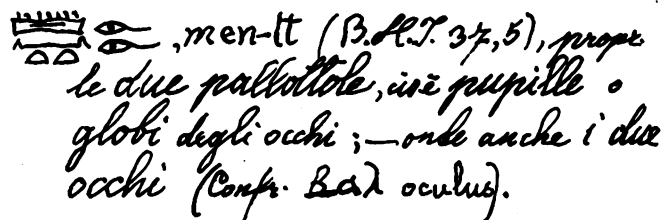 𓏠𓈖𓏏𓏏𓁹𓁹, men-tt (B.H.I. 37,5), propr.
le due pallottole, cioè pupille o
globi degli occhi ; — onde anche i due
occhi (Confr. ⲃⲁⲗ oculus).